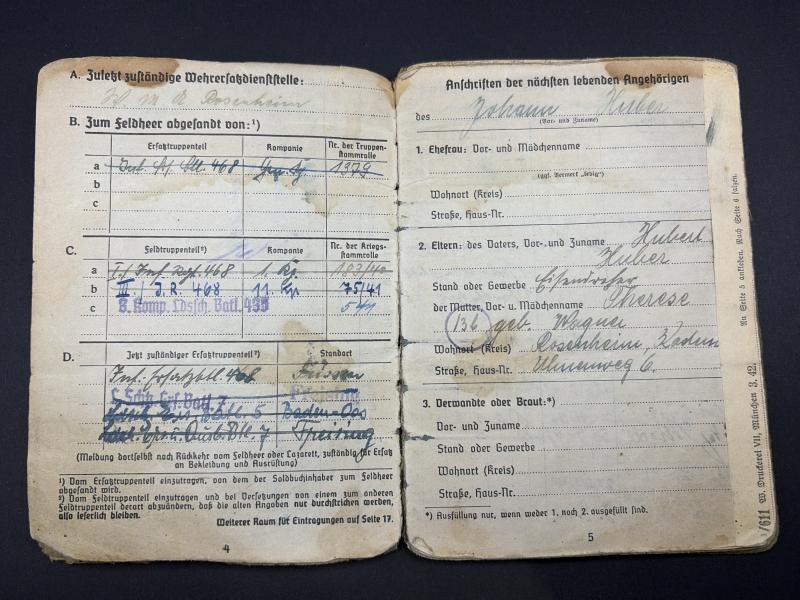 A. Zuletzt zuständige Wehrersatzdienststelle:
W. M. A. Rosenheim
B. Zum Feldheer abgesandt von:¹)
Ersatztruppenteil Kompanie Nr. der Truppenstammrolle
a 468 1379
b
c
C. Feldtruppenteil²) Kompanie Nr. der Kriegsstammrolle
a I./Inf. Rgt. 468 1. Kp. 103/40
b III/J.R. 468 11. Kp 75/41
c 3. Komp. Ldsch. Batl. 435 541
D. Jetzt zuständiger Ersatztruppenteil²) Standort
Inf. Ersatzbtl. 468 Füssen
Ers. Batl. 7
Batl. 5 Baden-Oos
u. Ausb. Btl. 7 Freising
(Meldung dortselbst nach Rückkehr vom Feldheer oder Lazarett, zuständig für Ersatz
an Bekleidung und Ausrüstung)
¹) Vom Ersatztruppenteil einzutragen, von dem der Soldbuchinhaber zum Feldheer
abgesandt wird.
²) Vom Feldtruppenteil einzutragen und bei Versetzungen von einem zum anderen
Feldtruppenteil derart abzuändern, daß die alten Angaben nur durchstrichen werden,
also leserlich bleiben.
Weiterer Raum für Eintragungen auf Seite 17.
4
Anschriften der nächsten lebenden Angehörigen
des Johann Huber
(Vor- und Zuname)
1. Ehefrau: Vor- und Mädchenname
(ggf. Vermerk „ledig")
Wohnort (Kreis)
Straße, Haus-Nr.
2. Eltern: des Vaters, Vor- und Zuname Hubert
Huber
Stand oder Gewerbe Eisendreher
der Mutter, Vor- u. Mädchenname Therese
136 geb. Wagner
Wohnort (Kreis) Rosenheim, Baden
Straße, Haus-Nr. Ulmenweg 6.
3. Verwandte oder Braut:*)
Vor- und Zuname
Stand oder Gewerbe
Wohnort (Kreis)
Straße, Haus-Nr.
*) Ausfüllung nur, wenn weder 1. noch 2. ausgefüllt sind.
5
An Seite 5 ankleben. Nach Seite 6 falzen.
/611 W. Druckerei VII, München 3. 42.